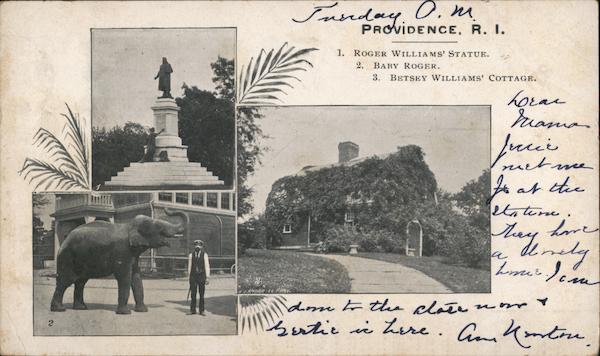 Tuesday P. M.
PROVIDENCE, R. I.
1. ROGER WILLIAMS' STATUE.
2. BABY ROGER.
3. BETSEY WILLIAMS' COTTAGE.
Dear
Mama
Jessie
met me
at the
station.
They have
a lovely
home. I am
down to the store now &
Gertie is here.
2